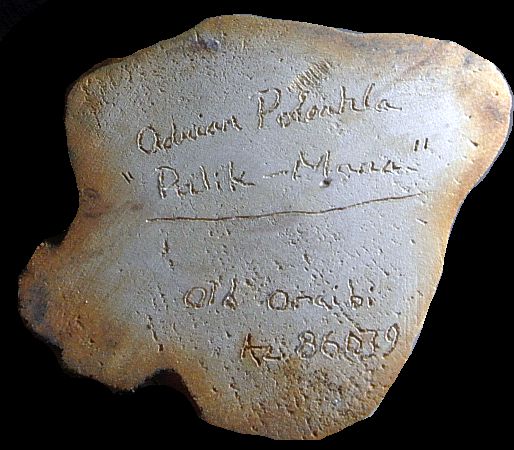 Adrian Poleahla
"Polik-Mana"
Old Oraibi
Az 86039